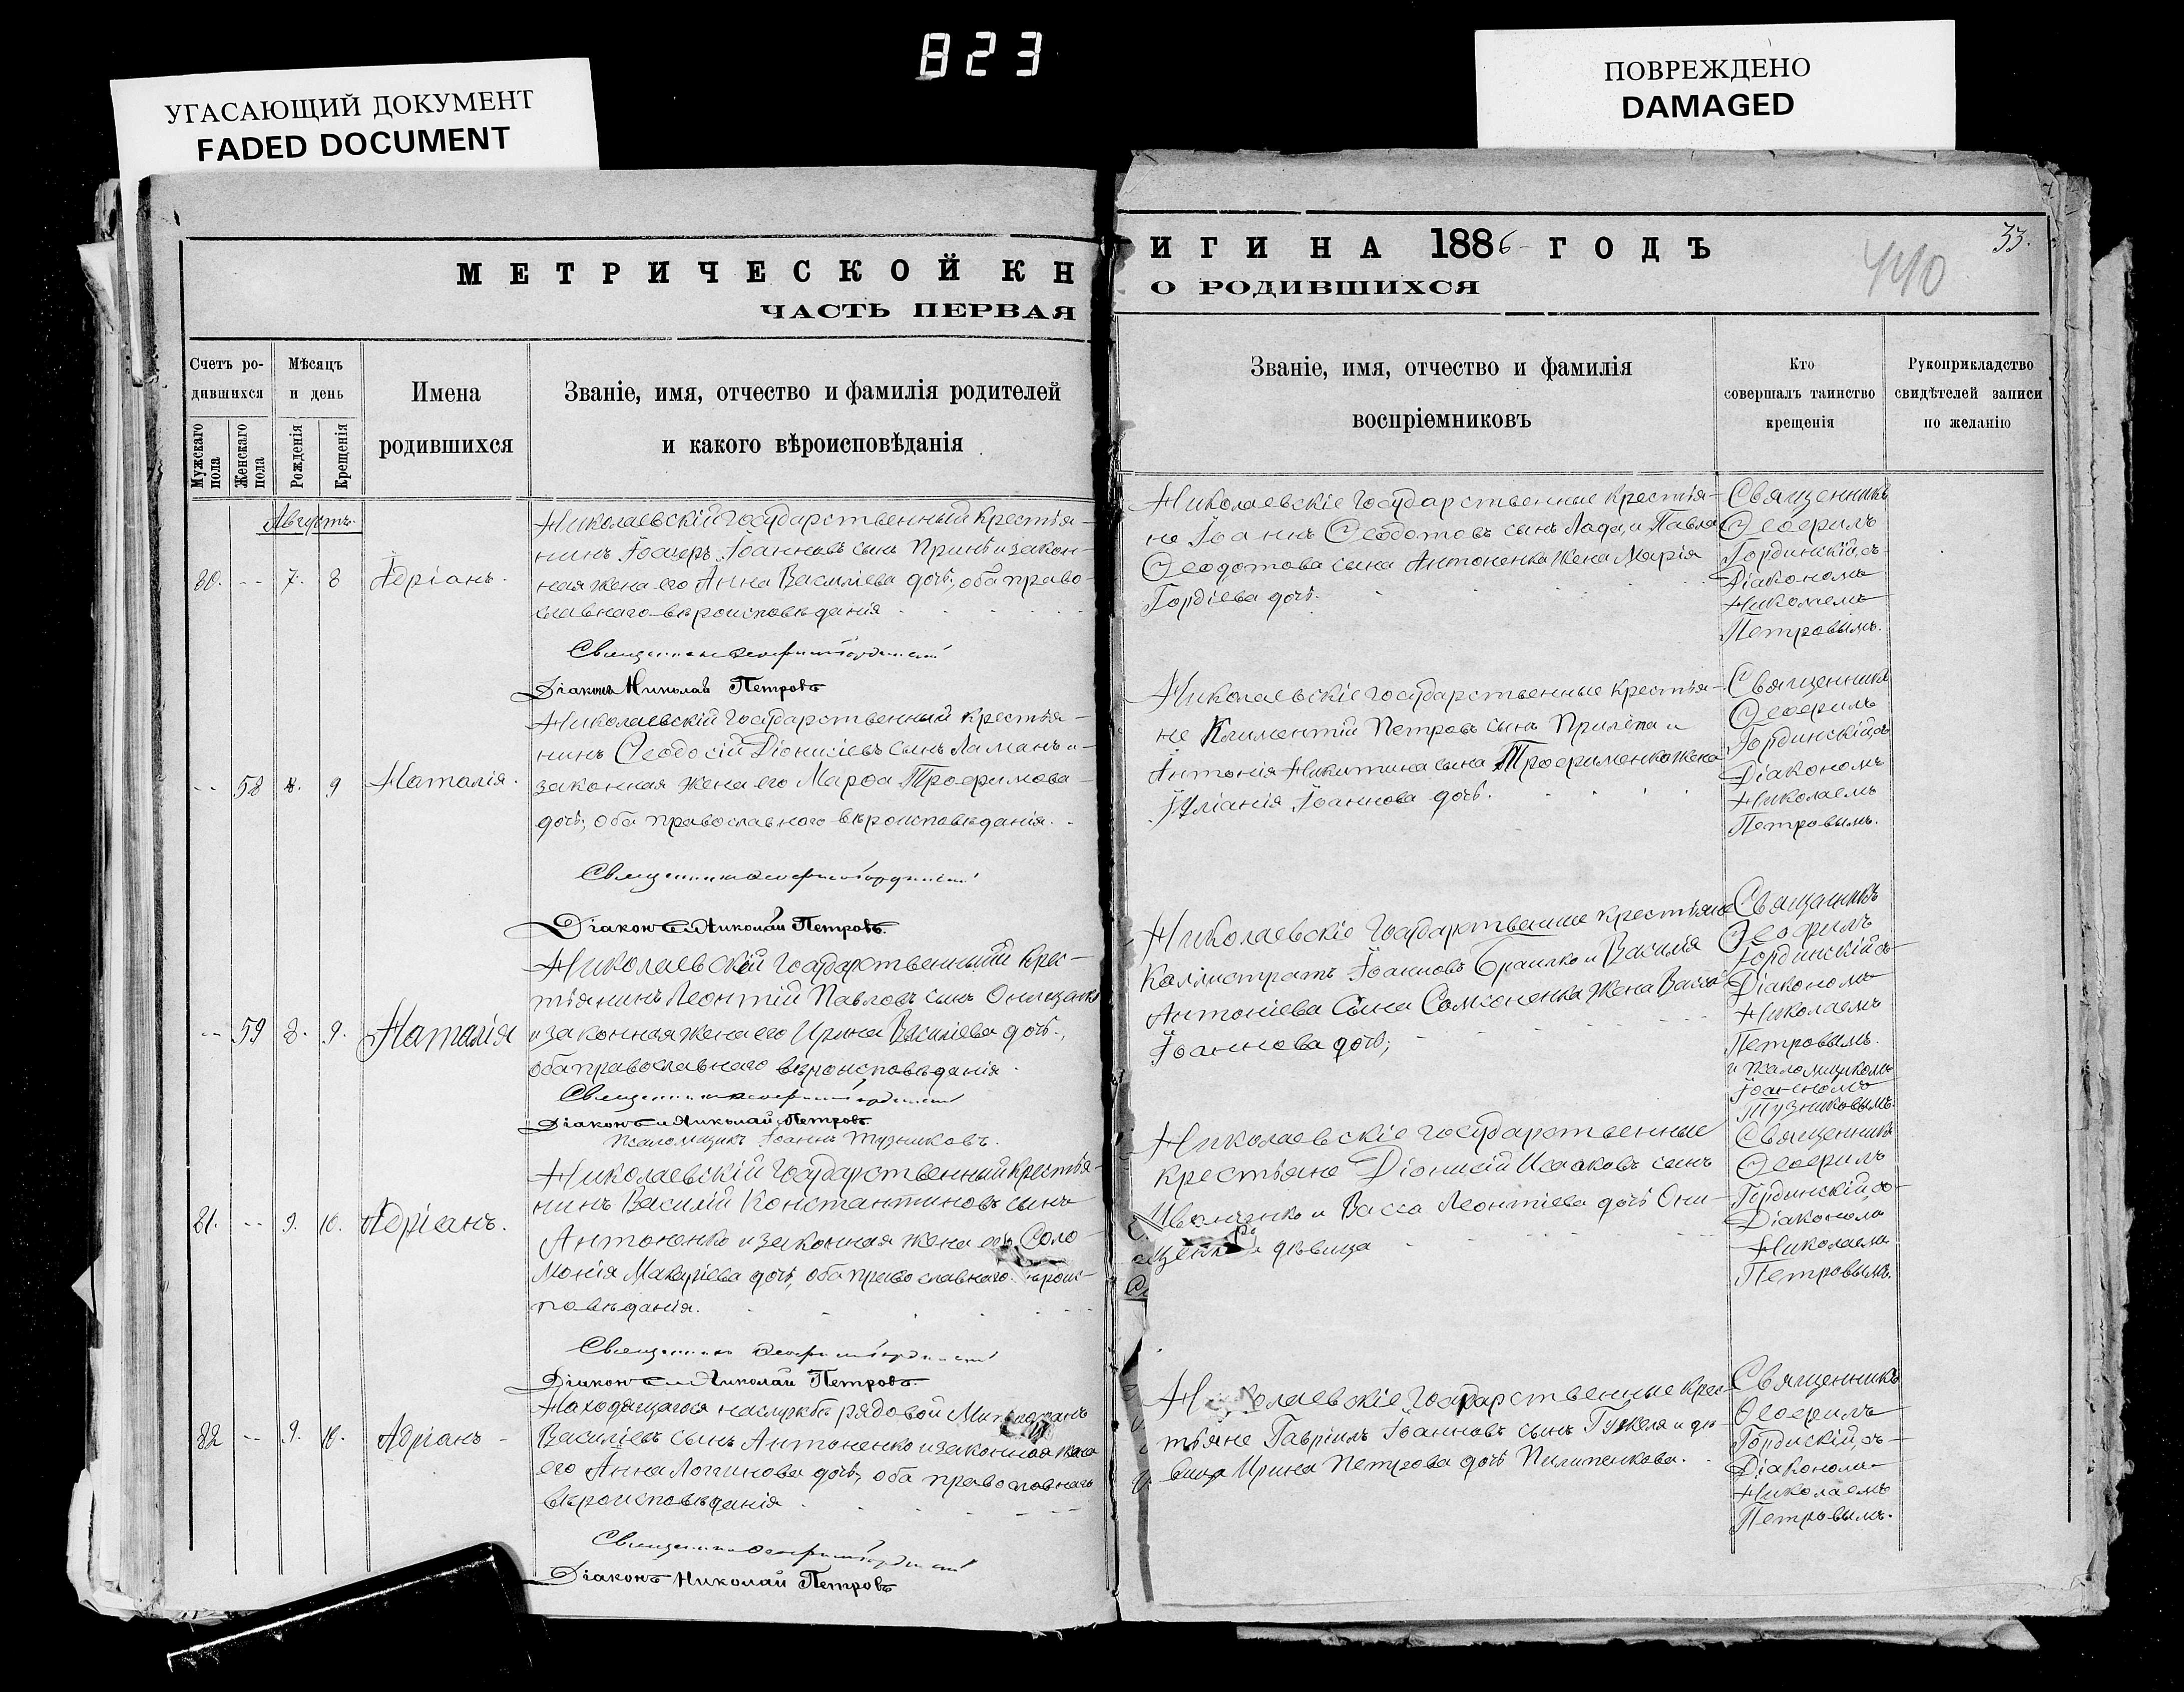 823
УГАСАЮЩИЙ ДОКУМЕНТ
FADED DOCUMENT
ПОВРЕЖДЕНО
DAMAGED
МЕТРИЧЕСКОЙ КН
ЧАСТЬ ПЕРВАЯ
Счетъ ро-
дившихся
Мужскаго
пола
Женскаго
пола
Мѣсяцъ
и день
Рожденія
Крещенія
Имена
родившихся
Званіе, имя, отчество и фамилія родителей
и какого вѣроисповѣданія
Августъ.
80. -- 7. 8 Адріанъ.
Николаевскій Государственный крестья-
нинъ Іоаннъ сынъ и закон-
ная жена его Анна Василіева дочь, оба право-
славнаго вѣроисповѣданія
Священникъ
Діаконъ Николай Петровъ
-- 58 8. 9 Наталія.
Николаевскій Государственный крестья-
нинъ Ѳеодосій Діонисіевъ сынъ Ламанъ и
законная жена его Марѳа Трофимова
дочь, оба православнаго вѣроисповѣданія.
Священникъ
Діаконъ Николай Петровъ.
-- 59 8. 9. Наталія
Николаевскій Государственный крес-
тьянинъ Леонтій Павловъ сынъ Онищенко
и законная жена его Ирина Василіева дочь,
оба православнаго вѣроисповѣданія.
Священникъ
Діаконъ Николай Петровъ.
Псаломщикъ Іоаннъ Тузниковъ.
81. -- 9. 10. Адріанъ.
Николаевскій Государственный крестья-
нинъ Василій Константиновъ сынъ
Антоненко и законная жена его Соло-
монія Макаріева дочь, оба православнаго вѣроис-
повѣданія.
Священникъ
Діаконъ Николай Петровъ.
82 -- 9. 10. Адріанъ
Находящагося на службѣ рядовой
Василіевъ сынъ Антоненко и законная жена
его Анна Логгинова дочь, оба православнаго
вѣроисповѣданія
Священникъ
Діаконъ Николай Петровъ
ИГИ НА 1886 ГОДЪ
О РОДИВШИХСЯ
33.
440
Званіе, имя, отчество и фамилія
воспріемниковъ
Кто
совершалъ таинство
крещенія
Рукоприкладство
свидѣтелей записи
по желанію
Николаевскіе Государственные крестья-
не Іоаннъ Ѳеодотовъ сынъ Лада, и Павла
Ѳеодотова сына Антоненка жена Марія
Гордіева дочь.
Священникъ
Ѳеофилъ
Гординскій, съ
Діакономъ
Николаемъ
Петровымъ.
Николаевскіе Государственные крестья-
не Климентій Петровъ сынъ Прилѣпа и
Антонія Никитина сына Трофименка жена
Іуліанія Іоаннова дочь.
Священникъ
Ѳеофилъ
Гординскій, съ
Діакономъ
Николаемъ
Петровымъ.
Николаевскіе Государственные крестьяне
Калистратъ Іоанновъ Браилко и Василія
Антоніева сына Самсоненка жена Васса
Іоаннова дочь;
Священникъ
Ѳеофилъ
Гординскій съ
Діакономъ
Николаемъ
Петровымъ.
и псаломщикомъ
Іоанномъ
Тузниковымъ.
Николаевскіе государственные
крестьяне Діонисій Исааковъ сынъ
Иванченко и Васса Леонтіева дочь Они-
щенкова дѣвица
Священникъ
Ѳеофилъ
Гординскій, съ
Діакономъ
Николаемъ
Петровымъ.
Николаевскіе Государственные крес-
тьяне Гавріилъ Іоанновъ сынъ Гужеля и дѣ-
вица Ирина Петрова дочь Пилипенкова.
Священникъ
Ѳеофилъ
Гординскій, съ
Діакономъ
Николаемъ
Петровымъ.